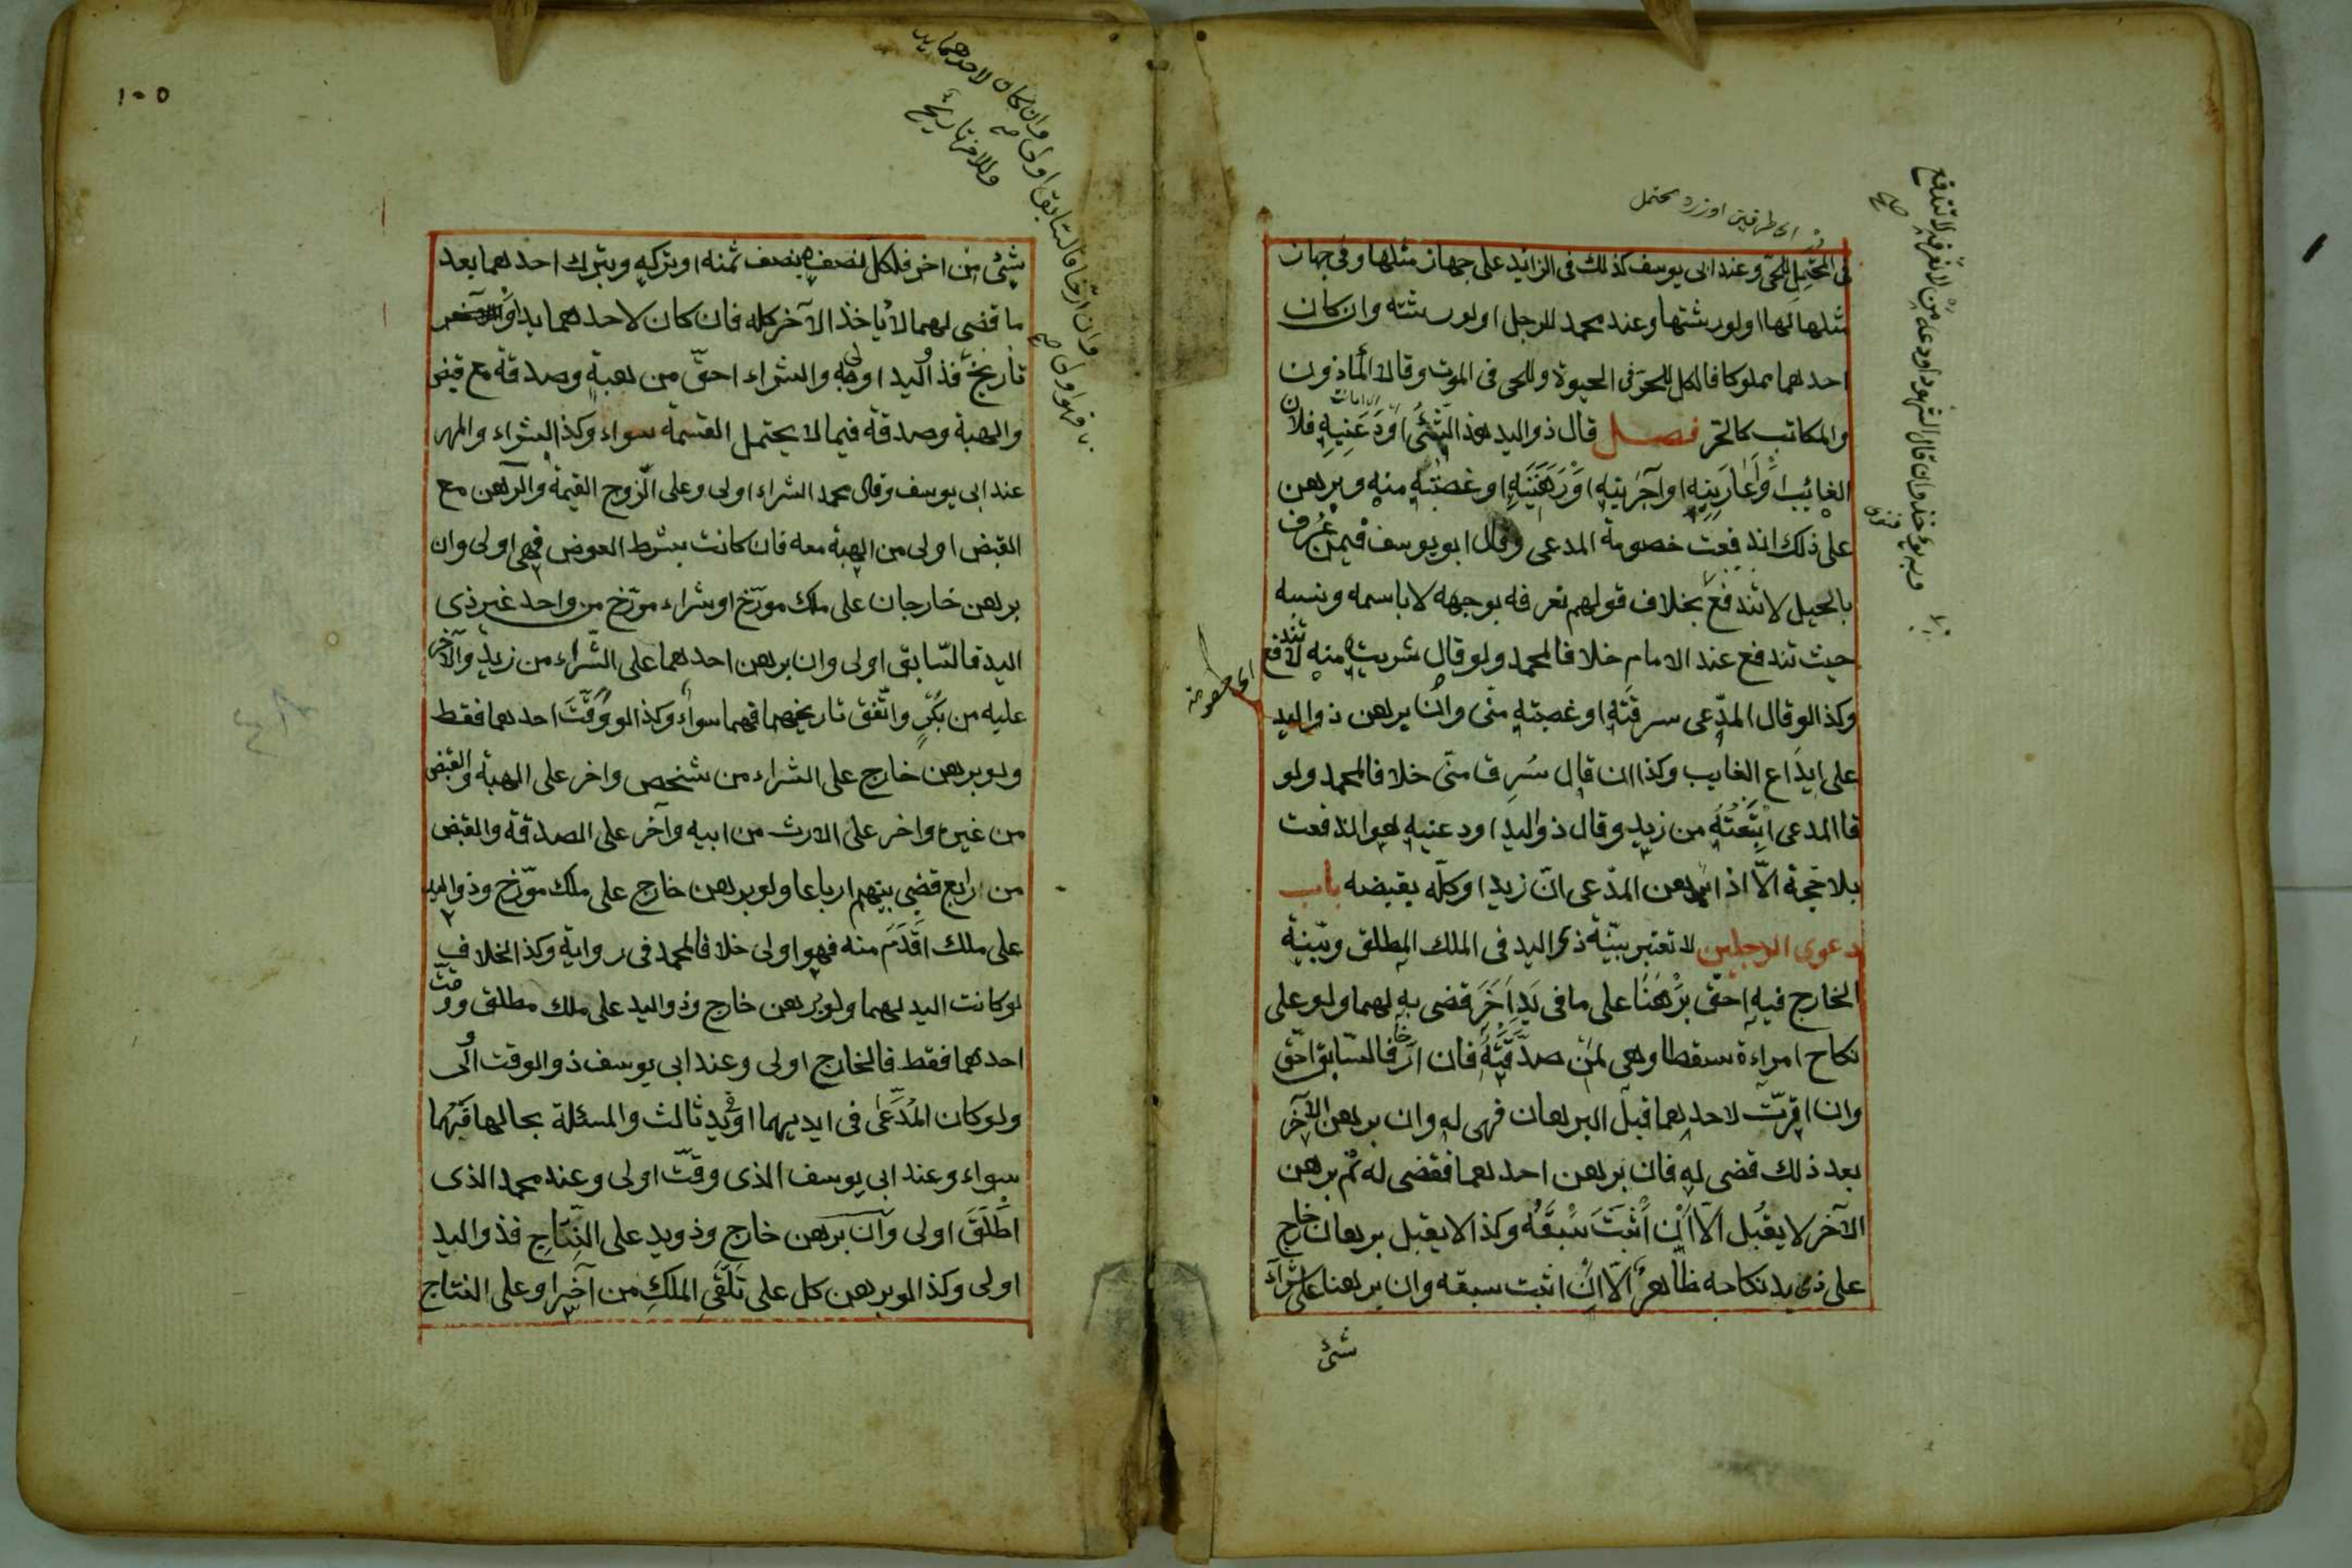 فى المحتمل للحى وعند ابى يوسف كذلك فى الزايد على جهاز مثلها وفى جهاز
مثلها لها اولورثتها وعند محمد للرجل اولورثته وان كان
احدهما مملوكا فالكل للحر فى الحيوة وللحى فى الموت وقالا المأذون
والمكاتب كالحر فصل قال ذواليد هذا الشئ اودعنيه فلان
الغائب اواعارنيه اوآجرنيه اورهننيه اوغصبته منه وبرهن
على ذلك اندفعت خصومة المدعى وقال ابو يوسف فيمن عرف
بالحيل لا تندفع بخلاف قولهم نعرفه بوجهه لا باسمه ونسبه
حيث تندفع عند الامام خلافا لمحمد ولو قال شريته منه لا تندفع
وكذا لو قال المدعى سرقته اوغصبته منى وان برهن ذواليد
على ايداع الغايب وكذا ان قال سرق منى خلافا لمحمد ولو
قا المدعى ابتعته من زيد وقال ذواليد اودعنيه هو اندفعت
بلا حجة الا اذا برهن المدعى ان زيدا وكله بقبضه باب
دعوى الرجلين لا تعتبر بينة ذى اليد فى الملك المطلق وبينة
الخارج فيه احق برهنا على ما فى يد اخر قضى به لهما ولو على
نكاح امراءة سقطا وهى لمن صدقته فان ارخا فالسابق احق
وان اقرت لاحدهما قبل البرهان فهى له وان برهن الآخر
بعد ذلك قضى له فان برهن احدهما فقضى له ثم برهن
الآخر لا يقبل الا ان اثبت سبقه وكذا لا يقبل برهان خارج
على ذى يد نكاحه ظاهر الا ان اثبت سبقه وان برهنا على شراء
شئ
اى خصومة
وبه يؤخذ وان قال الشهود اودعه من لا نعرفه لا تندفع
صح
١٠٥
شئ من اخر فلكل نصفه بنصف ثمنه اوتركه وبترك احدهما بعد
ما قضى لهما لا يأخذ الآخر كله فان كان لاحدهما يد او
تاريخ فذو اليد اولى والشراء احق من هبة وصدقة مع قبض
والهبة وصدقة فيما لا يحتمل القسمة سواء وكذا الشراء والمهر
عند ابى يوسف وقال محمد الشراء اولى وعلى الزوج القيمة والرهن مع
القبض اولى من الهبة معه فان كانت بشرط العوض فهى اولى وان
برهن خارجان على ملك مورخ اوشراء مورخ من واحد غير ذى
اليد فالسابق اولى وان برهن احدهما على الشراء من زيد والآخر
عليه من بكر واتفق تاريخهما فهما سواء وكذا لو وقت احدهما فقط
ولو برهن خارج على الشراء من شخص واخر على الهبة والقبض
من غيره واخر على الارث من ابيه وآخر على الصدقة والقبض
من رابع قضى بينهم ارباعا ولو برهن خارج على ملك مؤرخ وذواليد
على ملك اقدم منه فهو اولى خلافا لمحمد فى رواية وكذا الخلاف
لو كانت اليد لهما ولو برهن خارج وذواليد على ملك مطلق ووقت
احدهما فقط فالخارج اولى وعند ابى يوسف ذوالوقت اولى
ولو كان المدعى فى ايديهما او فى يد ثالث والمسئلة بحالها فهما
سواء وعند ابى يوسف الذى وقت اولى وعند محمد الذى
اطلق اولى وان برهن خارج وذويد على النتاج فذواليد
اولى وكذا لو برهن كل على تلقى الملك من آخر اوعلى النتاج
وان ارخا فالسابق اولى وان كان لاحدهما يد
وللاخر تاريخ
فهو اولى صح